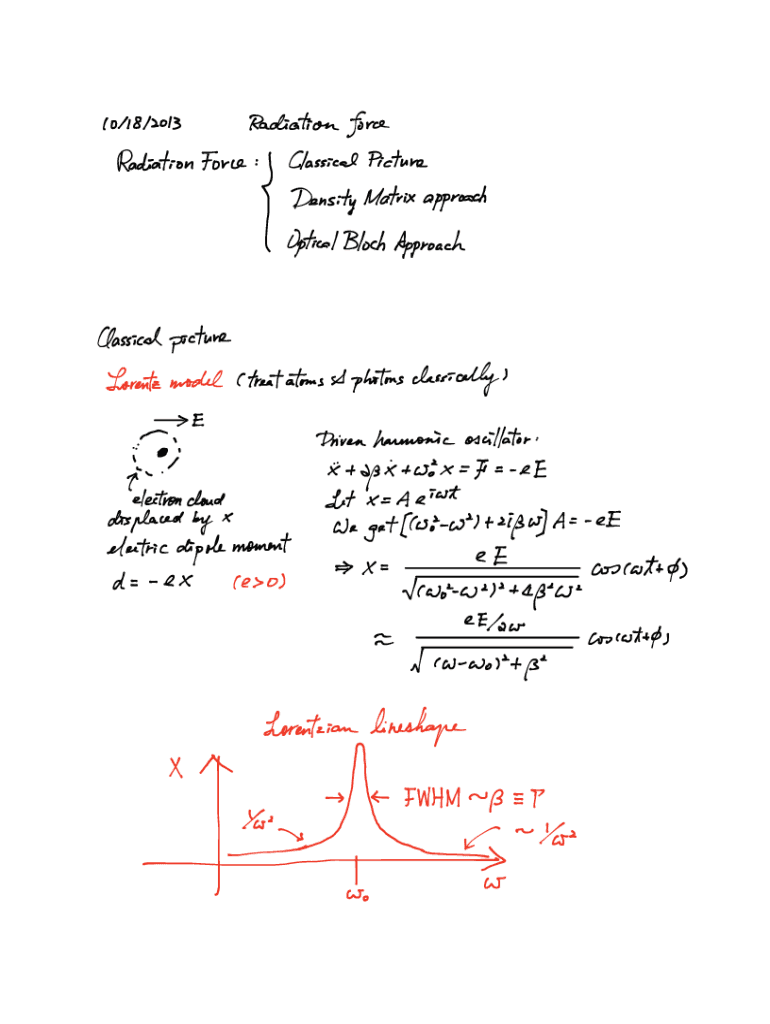 10/18/2013 Radiation force
Radiation Force : { Classical Picture
Density Matrix approach
Optical Bloch Approach
Classical picture
Lorentz model (treat atoms & photons classically)
→ E
electron cloud
displaced by x
electric dipole moment
d = - ex (e>0)
Driven harmonic oscillator.
ẍ + 2βẋ + ω₀²x = F = -eE
Let x = A e^{iωt}
We get [(ω₀²-ω²)+2iβω] A = -eE
⇒ x = eE / √((ω₀²-ω²)²+4β²ω²) cos(ωt+φ)
≈ eE/2ω / √((ω-ω₀)²+β²) cos(ωt+φ)
Lorentzian lineshape
X
→ ← FWHM ~β ≡ Γ
1/ω²
~ 1/ω²
ω
ω₀